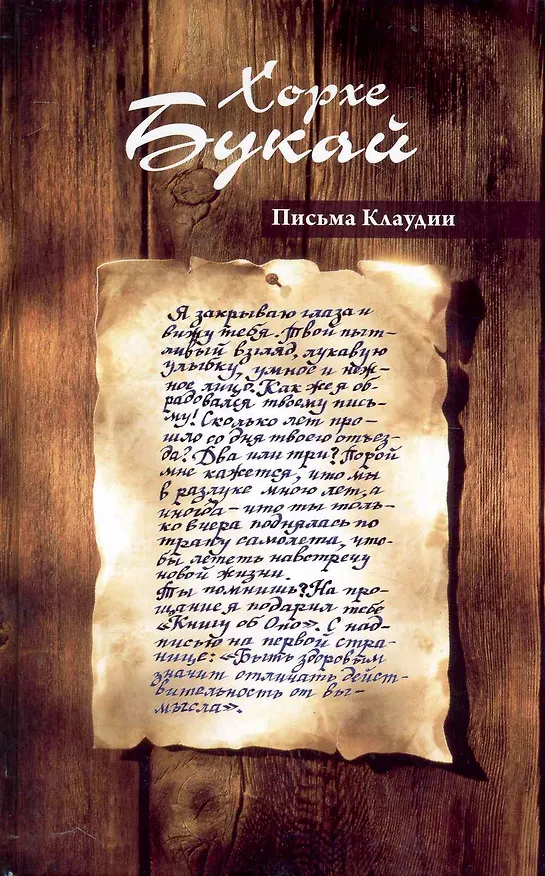 Хорхе
Букай
Письма Клаудии
Я закрываю глаза и
вижу тебя. Твой пыт-
ливый взгляд, лукавую
улыбку, умное и неж-
ное лицо. Как же я об-
радовался твоему пись-
му! Сколько лет про-
шло со дня твоего отъез-
да? Два или три? Порой
мне кажется, что мы
в разлуке много лет, а
иногда – что ты толь-
ко вчера поднялась по
трапу самолета, что-
бы лететь навстречу
новой жизни.
Ты помнишь? На про-
щание я подарил тебе
«Книгу об Опо». С над-
писью на первой стра-
нице: «Быть здоровым
значит отличать дейст-
вительность от вы-
мысла».